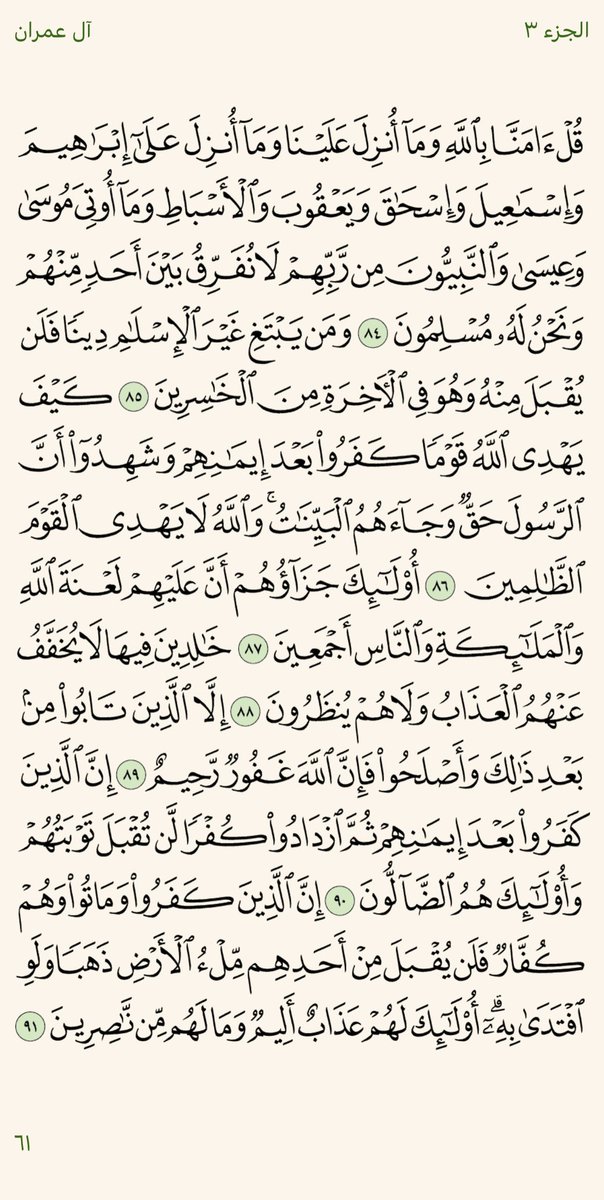 الجزء ٣
آل عمران
قُلْ ءَامَنَّا بِٱللَّهِ وَمَآ أُنزِلَ عَلَيْنَا وَمَآ أُنزِلَ عَلَىٰٓ إِبْرَٰهِيمَ
وَإِسْمَٰعِيلَ وَإِسْحَٰقَ وَيَعْقُوبَ وَٱلْأَسْبَاطِ وَمَآ أُوتِىَ مُوسَىٰ
وَعِيسَىٰ وَٱلنَّبِيُّونَ مِن رَّبِّهِمْ لَا نُفَرِّقُ بَيْنَ أَحَدٍ مِّنْهُمْ
وَنَحْنُ لَهُۥ مُسْلِمُونَ ٨٤ وَمَن يَبْتَغِ غَيْرَ ٱلْإِسْلَٰمِ دِينًا فَلَن
يُقْبَلَ مِنْهُ وَهُوَ فِى ٱلْأَخِرَةِ مِنَ ٱلْخَٰسِرِينَ ٨٥ كَيْفَ
يَهْدِى ٱللَّهُ قَوْمًا كَفَرُوا۟ بَعْدَ إِيمَٰنِهِمْ وَشَهِدُوٓا۟ أَنَّ
ٱلرَّسُولَ حَقٌّ وَجَآءَهُمُ ٱلْبَيِّنَٰتُ ۚ وَٱللَّهُ لَا يَهْدِى ٱلْقَوْمَ
ٱلظَّٰلِمِينَ ٨٦ أُو۟لَٰٓئِكَ جَزَآؤُهُمْ أَنَّ عَلَيْهِمْ لَعْنَةَ ٱللَّهِ
وَٱلْمَلَٰٓئِكَةِ وَٱلنَّاسِ أَجْمَعِينَ ٨٧ خَٰلِدِينَ فِيهَا لَا يُخَفَّفُ
عَنْهُمُ ٱلْعَذَابُ وَلَا هُمْ يُنظَرُونَ ٨٨ إِلَّا ٱلَّذِينَ تَابُوا۟ مِنۢ
بَعْدِ ذَٰلِكَ وَأَصْلَحُوا۟ فَإِنَّ ٱللَّهَ غَفُورٌ رَّحِيمٌ ٨٩ إِنَّ ٱلَّذِينَ
كَفَرُوا۟ بَعْدَ إِيمَٰنِهِمْ ثُمَّ ٱزْدَادُوا۟ كُفْرًا لَّن تُقْبَلَ تَوْبَتُهُمْ
وَأُو۟لَٰٓئِكَ هُمُ ٱلضَّآلُّونَ ٩٠ إِنَّ ٱلَّذِينَ كَفَرُوا۟ وَمَاتُوا۟ وَهُمْ
كُفَّارٌ فَلَن يُقْبَلَ مِنْ أَحَدِهِم مِّلْءُ ٱلْأَرْضِ ذَهَبًا وَلَوِ
ٱفْتَدَىٰ بِهِۦٓ ۗ أُو۟لَٰٓئِكَ لَهُمْ عَذَابٌ أَلِيمٌ وَمَا لَهُم مِّن نَّٰصِرِينَ ٩١
٦١